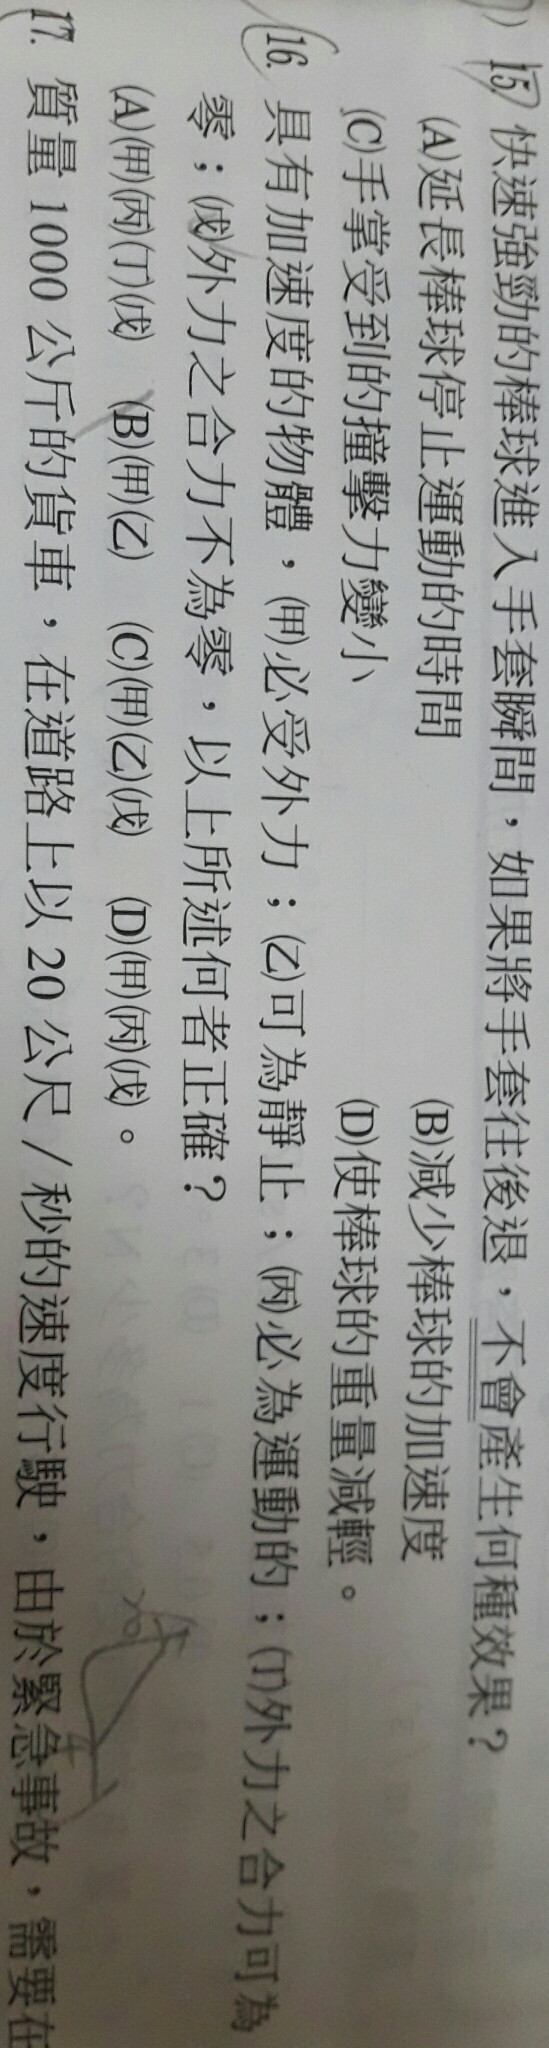 15. 快速強勁的棒球進入手套瞬間，如果將手套往後退，不會產生何種效果？
(A)延長棒球停止運動的時間 (B)減少棒球的加速度
(C)手掌受到的撞擊力變小 (D)使棒球的重量減輕。
16. 具有加速度的物體，(甲)必受外力；(乙)可為靜止；(丙)必為運動的；(丁)外力之合力可為
零；(戊)外力之合力不為零，以上所述何者正確？
(A)(甲)(丙)(丁)(戊) (B)(甲)(乙) (C)(甲)(乙)(戊) (D)(甲)(丙)(戊)。
17. 質量 1000 公斤的貨車，在道路上以 20 公尺／秒的速度行駛，由於緊急事故，需要在